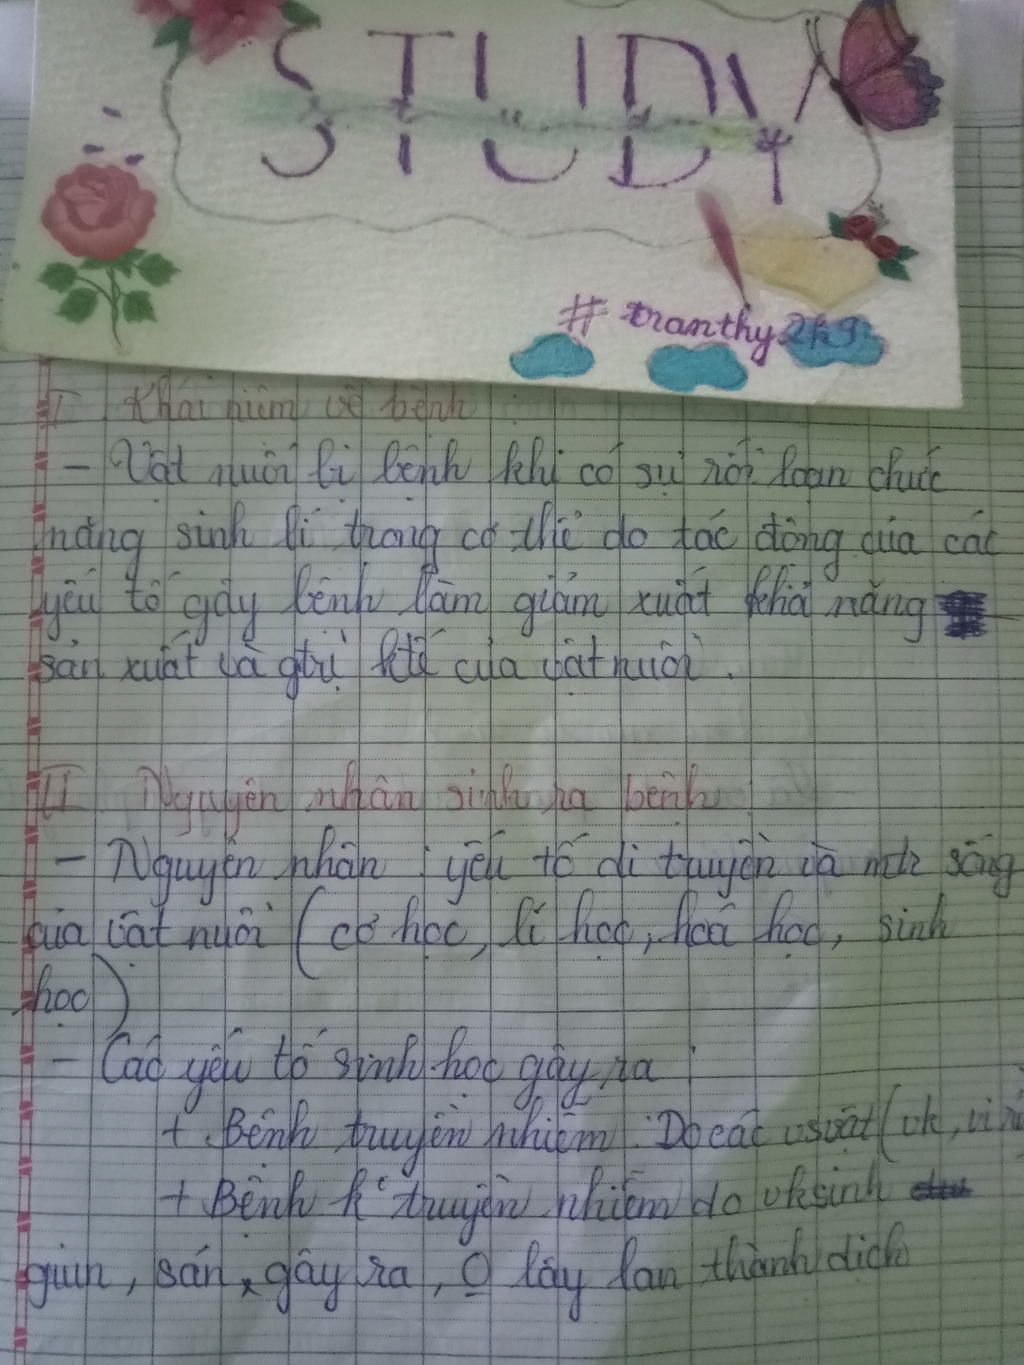 STUDY
# tranthy2k9
I Khái niệm về bệnh
- Vật nuôi bị bệnh khi có sự rối loạn chức
năng sinh lí trong cơ thể do tác động của các
yếu tố gây bệnh làm giảm xuất khả năng
sản xuất và gtrị ktế của vật nuôi.
II Nguyên nhân sinh ra bệnh
- Nguyên nhân : yếu tố di truyền và mtr sống
của vật nuôi (cơ học, lí học, hoá học, sinh
học)
- Các yếu tố sinh học gây ra :
+ Bệnh truyền nhiễm : Do các vsvật (vk, vi rú
+ Bệnh k° truyền nhiễm do vksinh
giun, sán, gây ra, O lây lan thành dịch